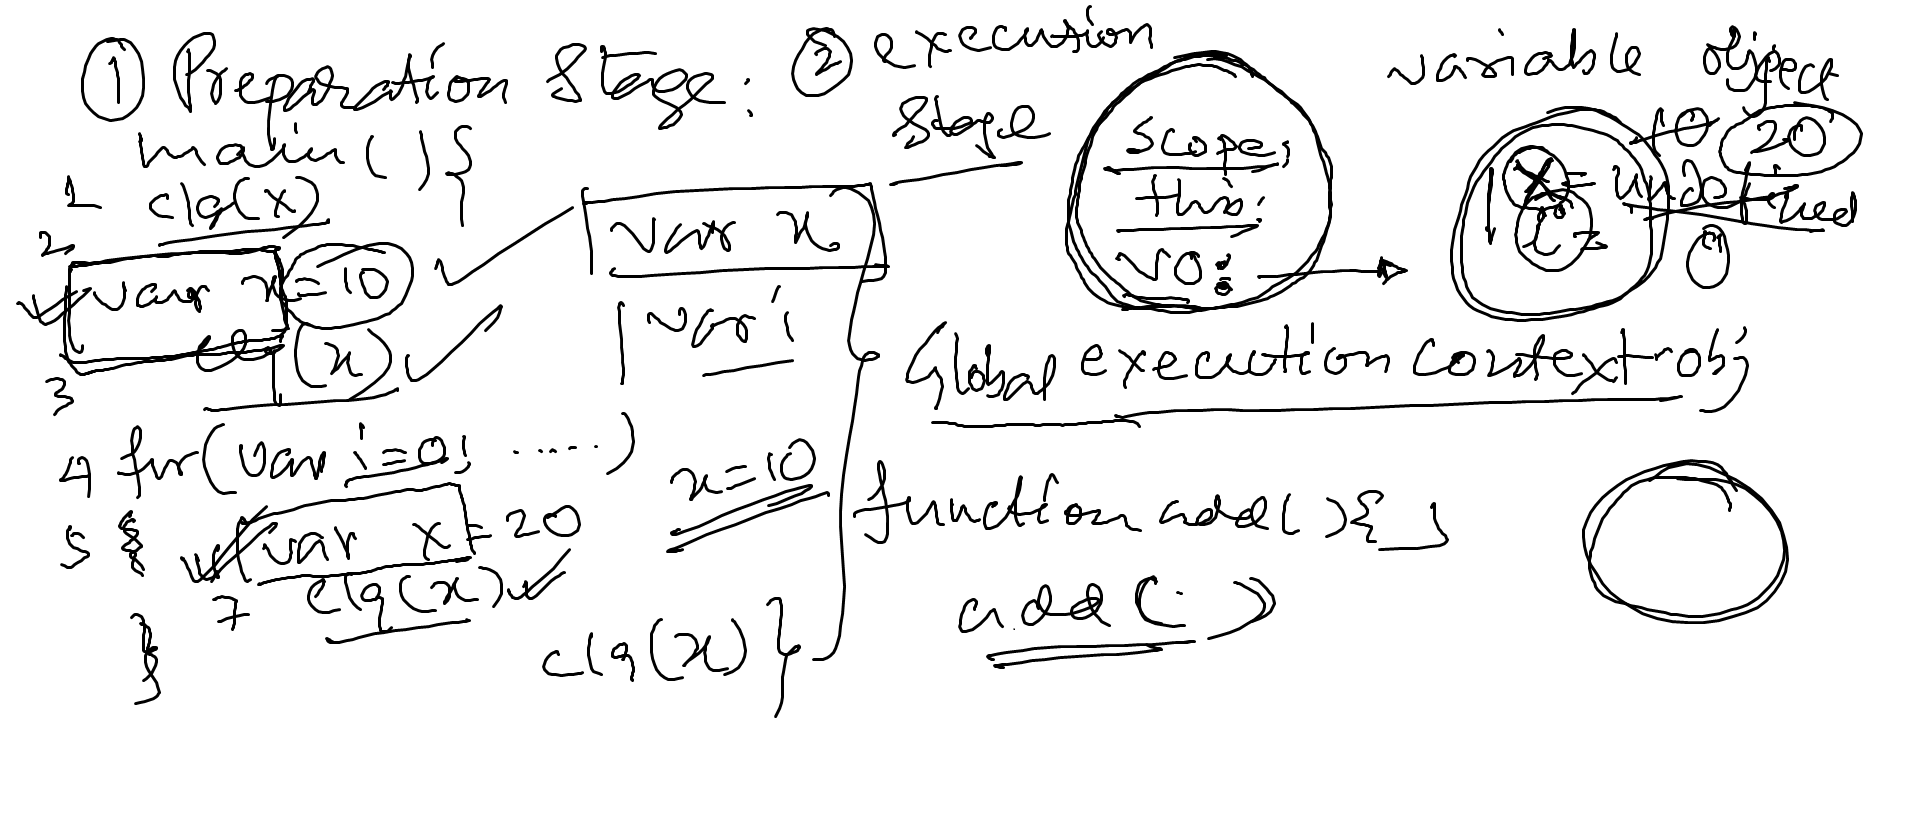 ① Preparation Stage:
② execution
Stage
main() {
1 clg(x)
2 var x=10
3 clg(x)
4 for(var i=0; ......)
5 {
var x=20
7 clg(x)
}
clg(x) }
var x
var i
x=10
Scope:
this:
VO:
variable object
10 20
x= undefined
i= 0
Global execution context obj
function add(){ }
add( )